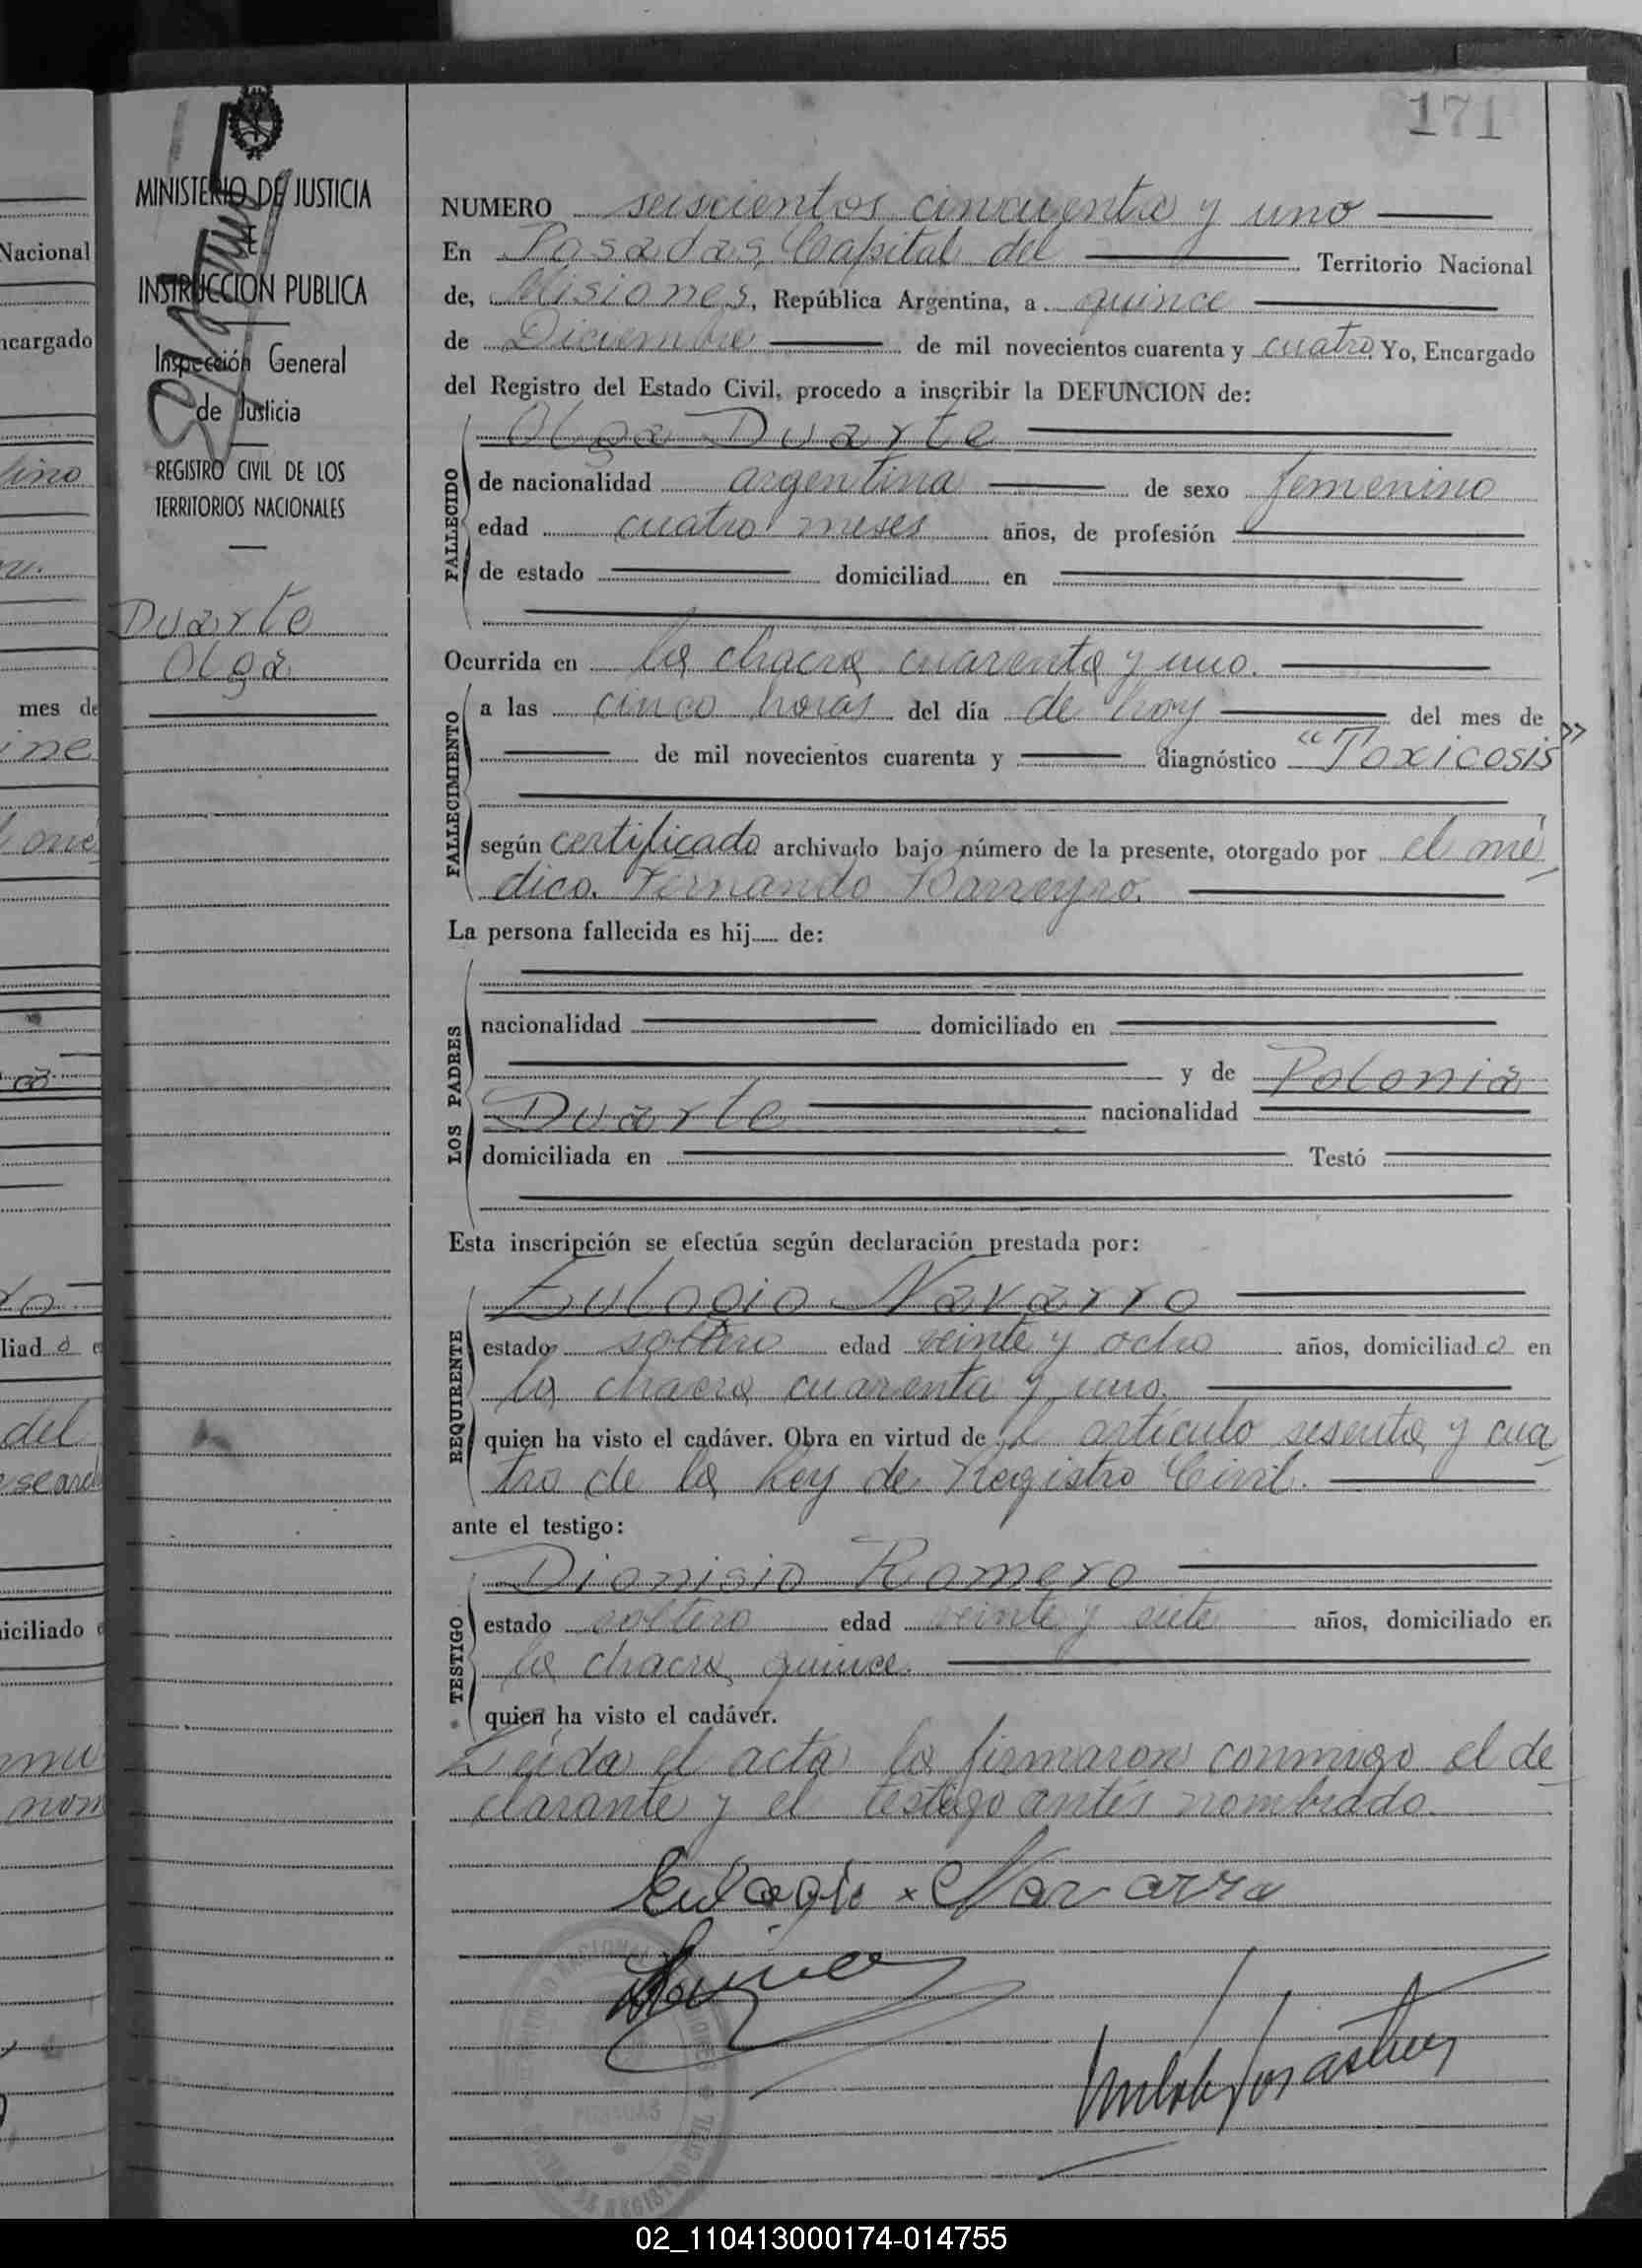 171
MINISTERIO DE JUSTICIA
E
INSTRUCCION PUBLICA
Inspección General
de Justicia
REGISTRO CIVIL DE LOS
TERRITORIOS NACIONALES
Duarte
Olga
NUMERO seiscientos cincuenta y uno
En Posadas, Capital del Territorio Nacional
de, Misiones, República Argentina, a quince
de Diciembre de mil novecientos cuarenta y cuatro Yo, Encargado
del Registro del Estado Civil, procedo a inscribir la DEFUNCION de:
Olga Duarte
FALLECIDO
de nacionalidad argentina de sexo femenino
edad cuatro meses años, de profesión
de estado domiciliad en
Ocurrida en la chacra cuarenta y uno.
FALLECIMIENTO
a las cinco horas del día de hoy del mes de
de mil novecientos cuarenta y diagnóstico "Toxicosis"
según certificado archivado bajo número de la presente, otorgado por el mé
dico. Fernando Barreyro.
La persona fallecida es hij de:
LOS PADRES
nacionalidad domiciliado en
y de Polonia
Duarte nacionalidad
domiciliada en Testó
Esta inscripción se efectúa según declaración prestada por:
Eulogio Navarro
REQUIRENTE
estado soltero edad veinte y ocho años, domiciliado en
la chacra cuarenta y uno.
quien ha visto el cadáver. Obra en virtud de l artículo sesenta y cua
tro de la Ley de Registro Civil.
ante el testigo:
Dionisio Romero
TESTIGO
estado soltero edad veinte y siete años, domiciliado en
la chacra quince.
quien ha visto el cadáver.
Leída el acta la firmaron conmigo el de
clarante y el testigo antes nombrado.
Eulogio Navarro
Nacional
ncargado
mes de
liad o e
del
iciliado
02_110413000174-014755